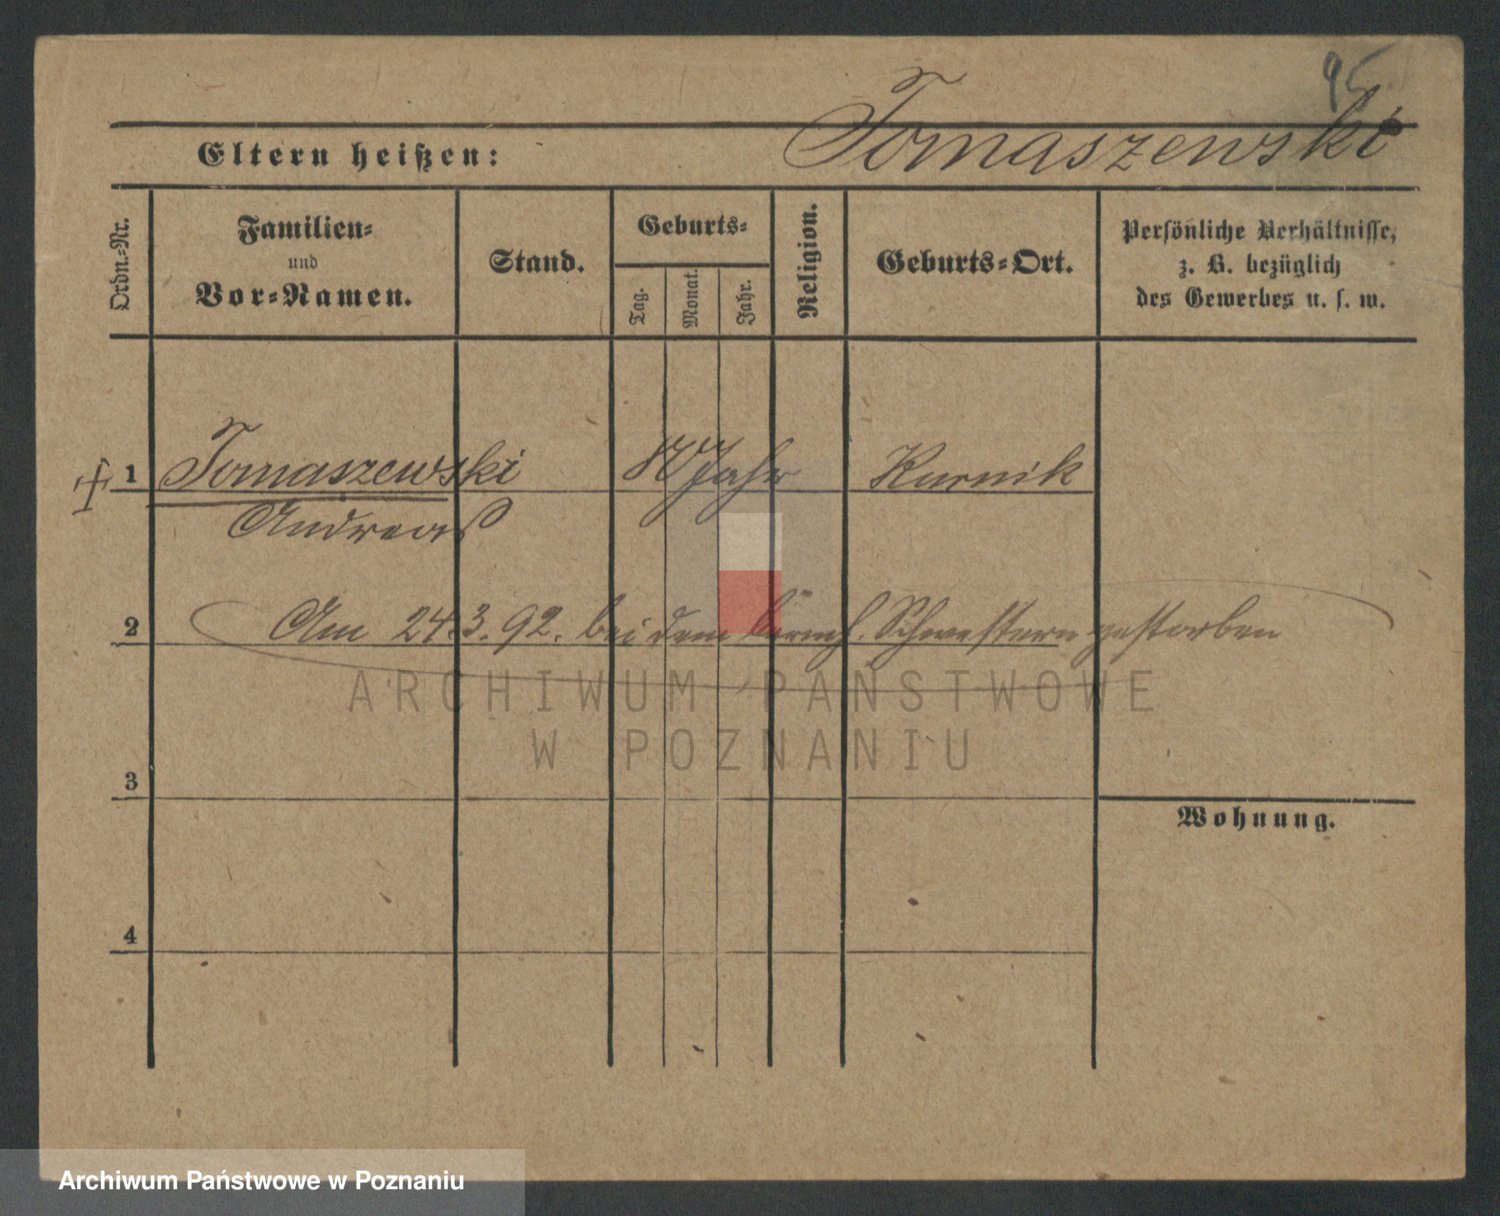 95
Eltern heißen: Tomaszewski
Ordn.-Nr.
Familien- und Vor-Namen.
Stand.
Geburts-
Tag.
Monat.
Jahr.
Religion.
Geburts-Ort.
Persönliche Verhältnisse,
z. B. bezüglich
des Gewerbes u. s. w.
1 Tomaszewski Jahr Kurnik
Andreas
2 Am 24.3.92. bei dem barmh. Schwestern gestorben
ARCHIWUM PAŃSTWOWE
W POZNANIU
3
Wohnung.
4
Archiwum Państwowe w Poznaniu